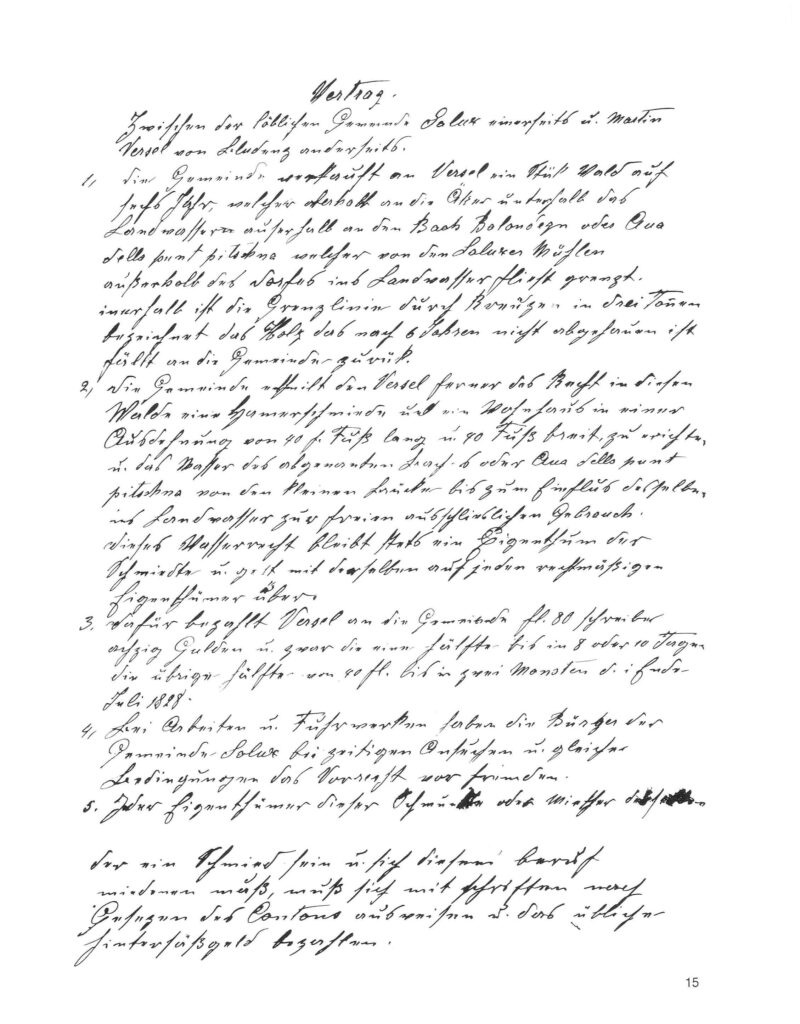 Vertrag.
Zwischen der löblichen Gemeinde Salux einerseits u. Martin
Versel von Bludenz anderseits.
1, die Gemeinde verkauft an Versel ein Stük Wald auf
sechs Jahr, welcher oberhalb an die Äker unterhalb das
Landwassern auserhalb an den Bach Balandegn oder Aua
dells punt pitschna welcher von den Saluxer Mühlen
außerhalb des Dorfes ins Landwasser fliest grenzt.
inerhalb ist die Grenzlinie durch Kreuzen in drei Tannen
bezeichnet das Holz das nach 6 Jahren nicht abgehauen ist
fällt an die Gemeinde zurük.
2, Die Gemeinde ertheilt den Versel ferner das Recht in diesen
Walde eine Hamerschmiede und ein Wohnhaus in einer
Ausdehnung von 40 Fuß lang u 40 Fuß breit, zu erichte,
u. das Wasser des abgenanten Bach oder Aua dells punt
pitschna von den kleinen Brücke bis zum Einflus desselbe,
ins Landwasser zur freien ausschlieslichen Gebrauch.
dieses Wasserrecht bleibt stets ein Eigenthum der
Schmiedte u. geht mit derselben auf jeden rechtmäßigen
Eigenthümer über.
3. Dafür bezahlt Versel an die Gemeinde fl. 80 schreibe
achzig Gulden u. zwar die eine hälfte bis in 8 oder 10 Tagen
die übrige hälfte von 40 fl. bis in zwei Monaten d. i Ende
Juli 1828.
4, Bei Arbeiten u. Fuhrwerken haben die Bürger der
Gemeinde Salux bei zeitigen Ansuchen u. gleiche
Bedingungen das Vorrecht vor fremden.
5. Jeder Eigenthümer dieser Schmiedte oder Miether desselben
der ein Schmied sein u. sich diesem beruf
wiedmen muß, muß sich mit schriften nach
Gesezen des Cantons ausweisen u. das übliche
hintersäßgeld bezahlen.
15